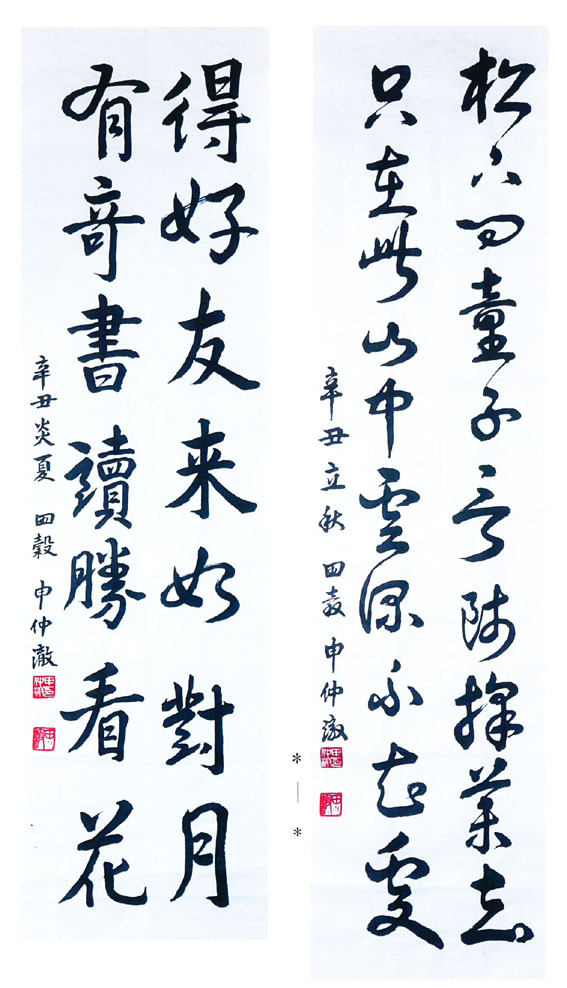 松下問童子言師採藥去
只在此山中雲深不知處
辛丑立秋 田穀 申仲澈
得好友来如對月
有竒書讀勝看花
辛丑炎夏 田穀 申仲澈